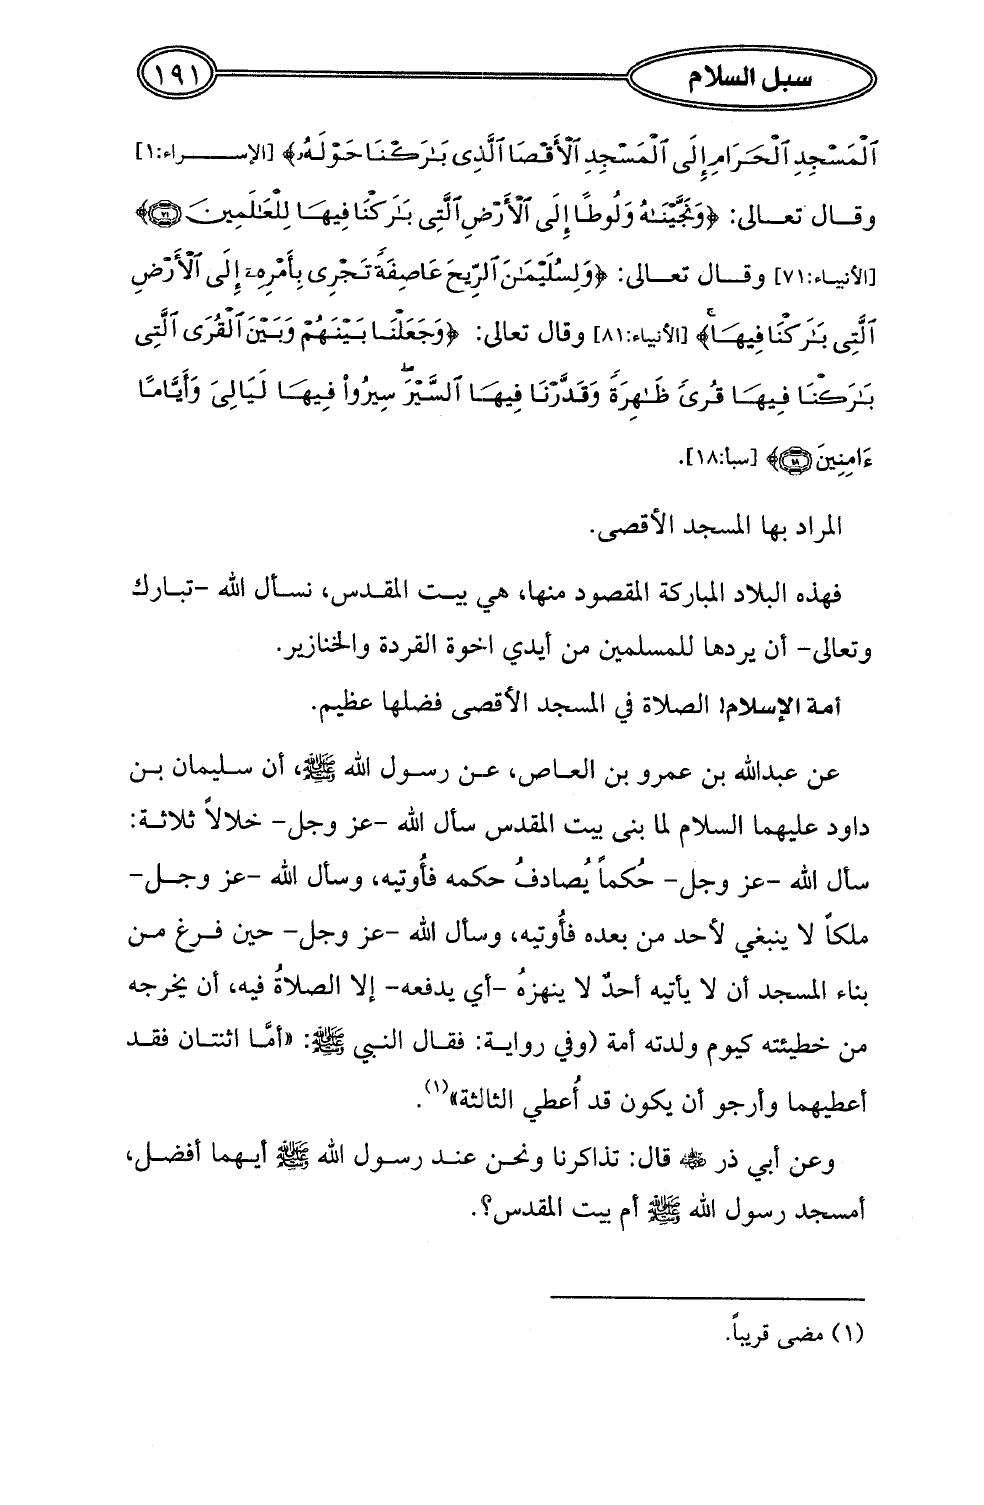 سبل السلام
١٩١
ٱلْمَسْجِدِ ٱلْحَرَامِ إِلَى ٱلْمَسْجِدِ ٱلْأَقْصَا ٱلَّذِى بَـٰرَكْنَا حَوْلَهُۥ﴾ [الإسراء:١]
وقال تعالى: ﴿وَنَجَّيْنَـٰهُ وَلُوطًا إِلَى ٱلْأَرْضِ ٱلَّتِى بَـٰرَكْنَا فِيهَا لِلْعَـٰلَمِينَ ٧١﴾
[الأنبياء:٧١] وقال تعالى: ﴿وَلِسُلَيْمَـٰنَ ٱلرِّيحَ عَاصِفَةً تَجْرِى بِأَمْرِهِۦٓ إِلَى ٱلْأَرْضِ
ٱلَّتِى بَـٰرَكْنَا فِيهَا ۚ﴾ [الأنبياء:٨١] وقال تعالى: ﴿وَجَعَلْنَا بَيْنَهُمْ وَبَيْنَ ٱلْقُرَى ٱلَّتِى
بَـٰرَكْنَا فِيهَا قُرًى ظَـٰهِرَةً وَقَدَّرْنَا فِيهَا ٱلسَّيْرَ ۖ سِيرُوا۟ فِيهَا لَيَالِىَ وَأَيَّامًا
ءَامِنِينَ ١٨﴾ [سبا:١٨].
المراد بها المسجد الأقصى.
فهذه البلاد المباركة المقصود منها، هي بيت المقدس، نسأل الله -تبارك
وتعالى- أن يردها للمسلمين من أيدي اخوة القردة والخنازير.
أمة الإسلام! الصلاة في المسجد الأقصى فضلها عظيم.
عن عبدالله بن عمرو بن العاص، عن رسول الله ﷺ، أن سليمان بن
داود عليهما السلام لما بنى بيت المقدس سأل الله -عز وجل- خلالاً ثلاثة:
سأل الله -عز وجل- حُكماً يُصادفُ حكمه فأُوتيه، وسأل الله -عز وجل-
ملكاً لا ينبغي لأحد من بعده فأُوتيه، وسأل الله -عز وجل- حين فرغ من
بناء المسجد أن لا يأتيه أحدٌ لا ينهزهُ -أي يدفعه- إلا الصلاةُ فيه، أن يخرجه
من خطيئته كيوم ولدته أمة (وفي رواية: فقال النبي ﷺ: «أمَّا اثنتان فقد
أعطيهما وأرجو أن يكون قد أُعطي الثالثة»(١).
وعن أبي ذر رضي الله عنه قال: تذاكرنا ونحن عند رسول الله ﷺ أيهما أفضل،
أمسجد رسول الله ﷺ أم بيت المقدس؟.
(١) مضى قريباً.